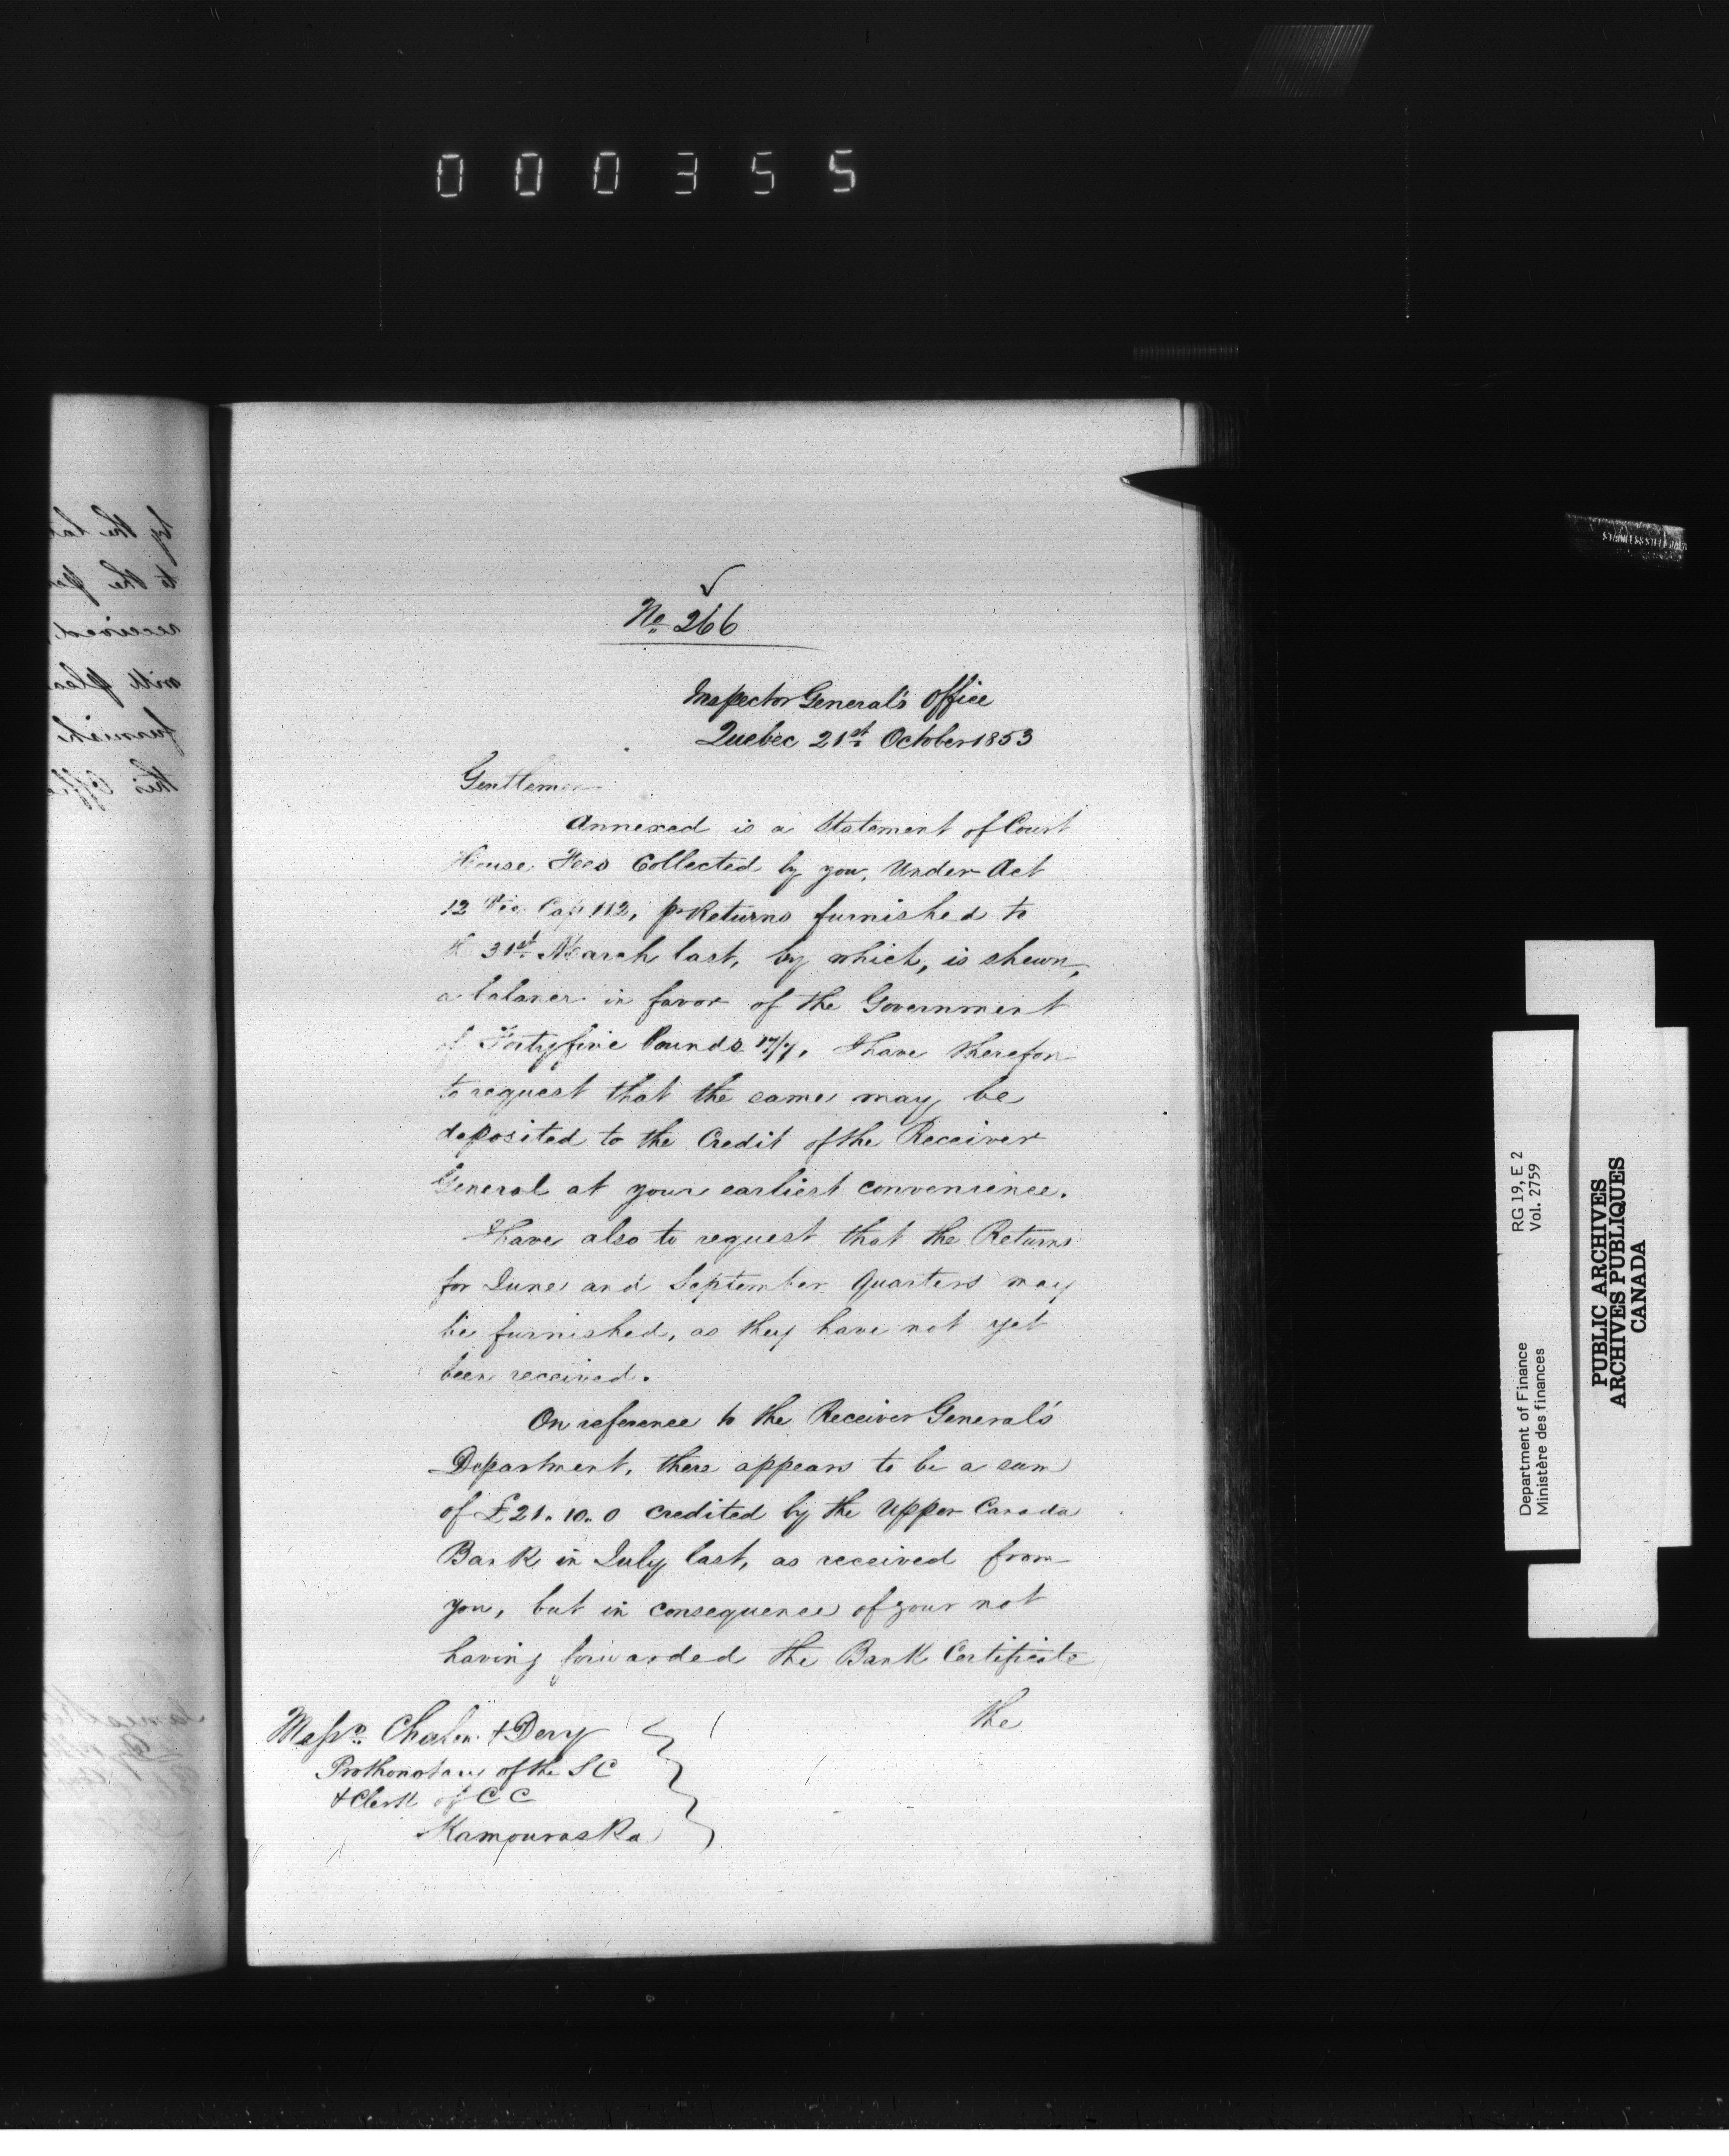 000355
No. 266
Inspector General's Office
Quebec 21st October 1853
Gentlemen
Annexed is a Statement of Court
House Fees Collected by you, Under Act
12 Vic Cap 112, pr Returns furnished to
the 31st March last, by which, is shewn,
a balance in favor of the Government
of Fortyfive Pounds 17/7. I have therefore
to request that the same may be
deposited to the Credit of the Receiver
General at your earliest convenience.
I have also to request that the Returns
for June and September Quarters may
be furnished, as they have not yet
been received.
On reference to the Receiver General's
Department, there appears to be a sum
of £21.10.0 credited by the Upper Canada
Bank in July last, as received from
you, but in consequence of your not
having forwarded the Bank Certificate
the
Messrs. & Dery
Prothonotary of the S C
& Clerk of C C
Kamouraska
by the
to the
received,
will
furnish
this
RG 19, E 2
Vol. 2759
Department of Finance
Ministère des finances
PUBLIC ARCHIVES
ARCHIVES PUBLIQUES
CANADA